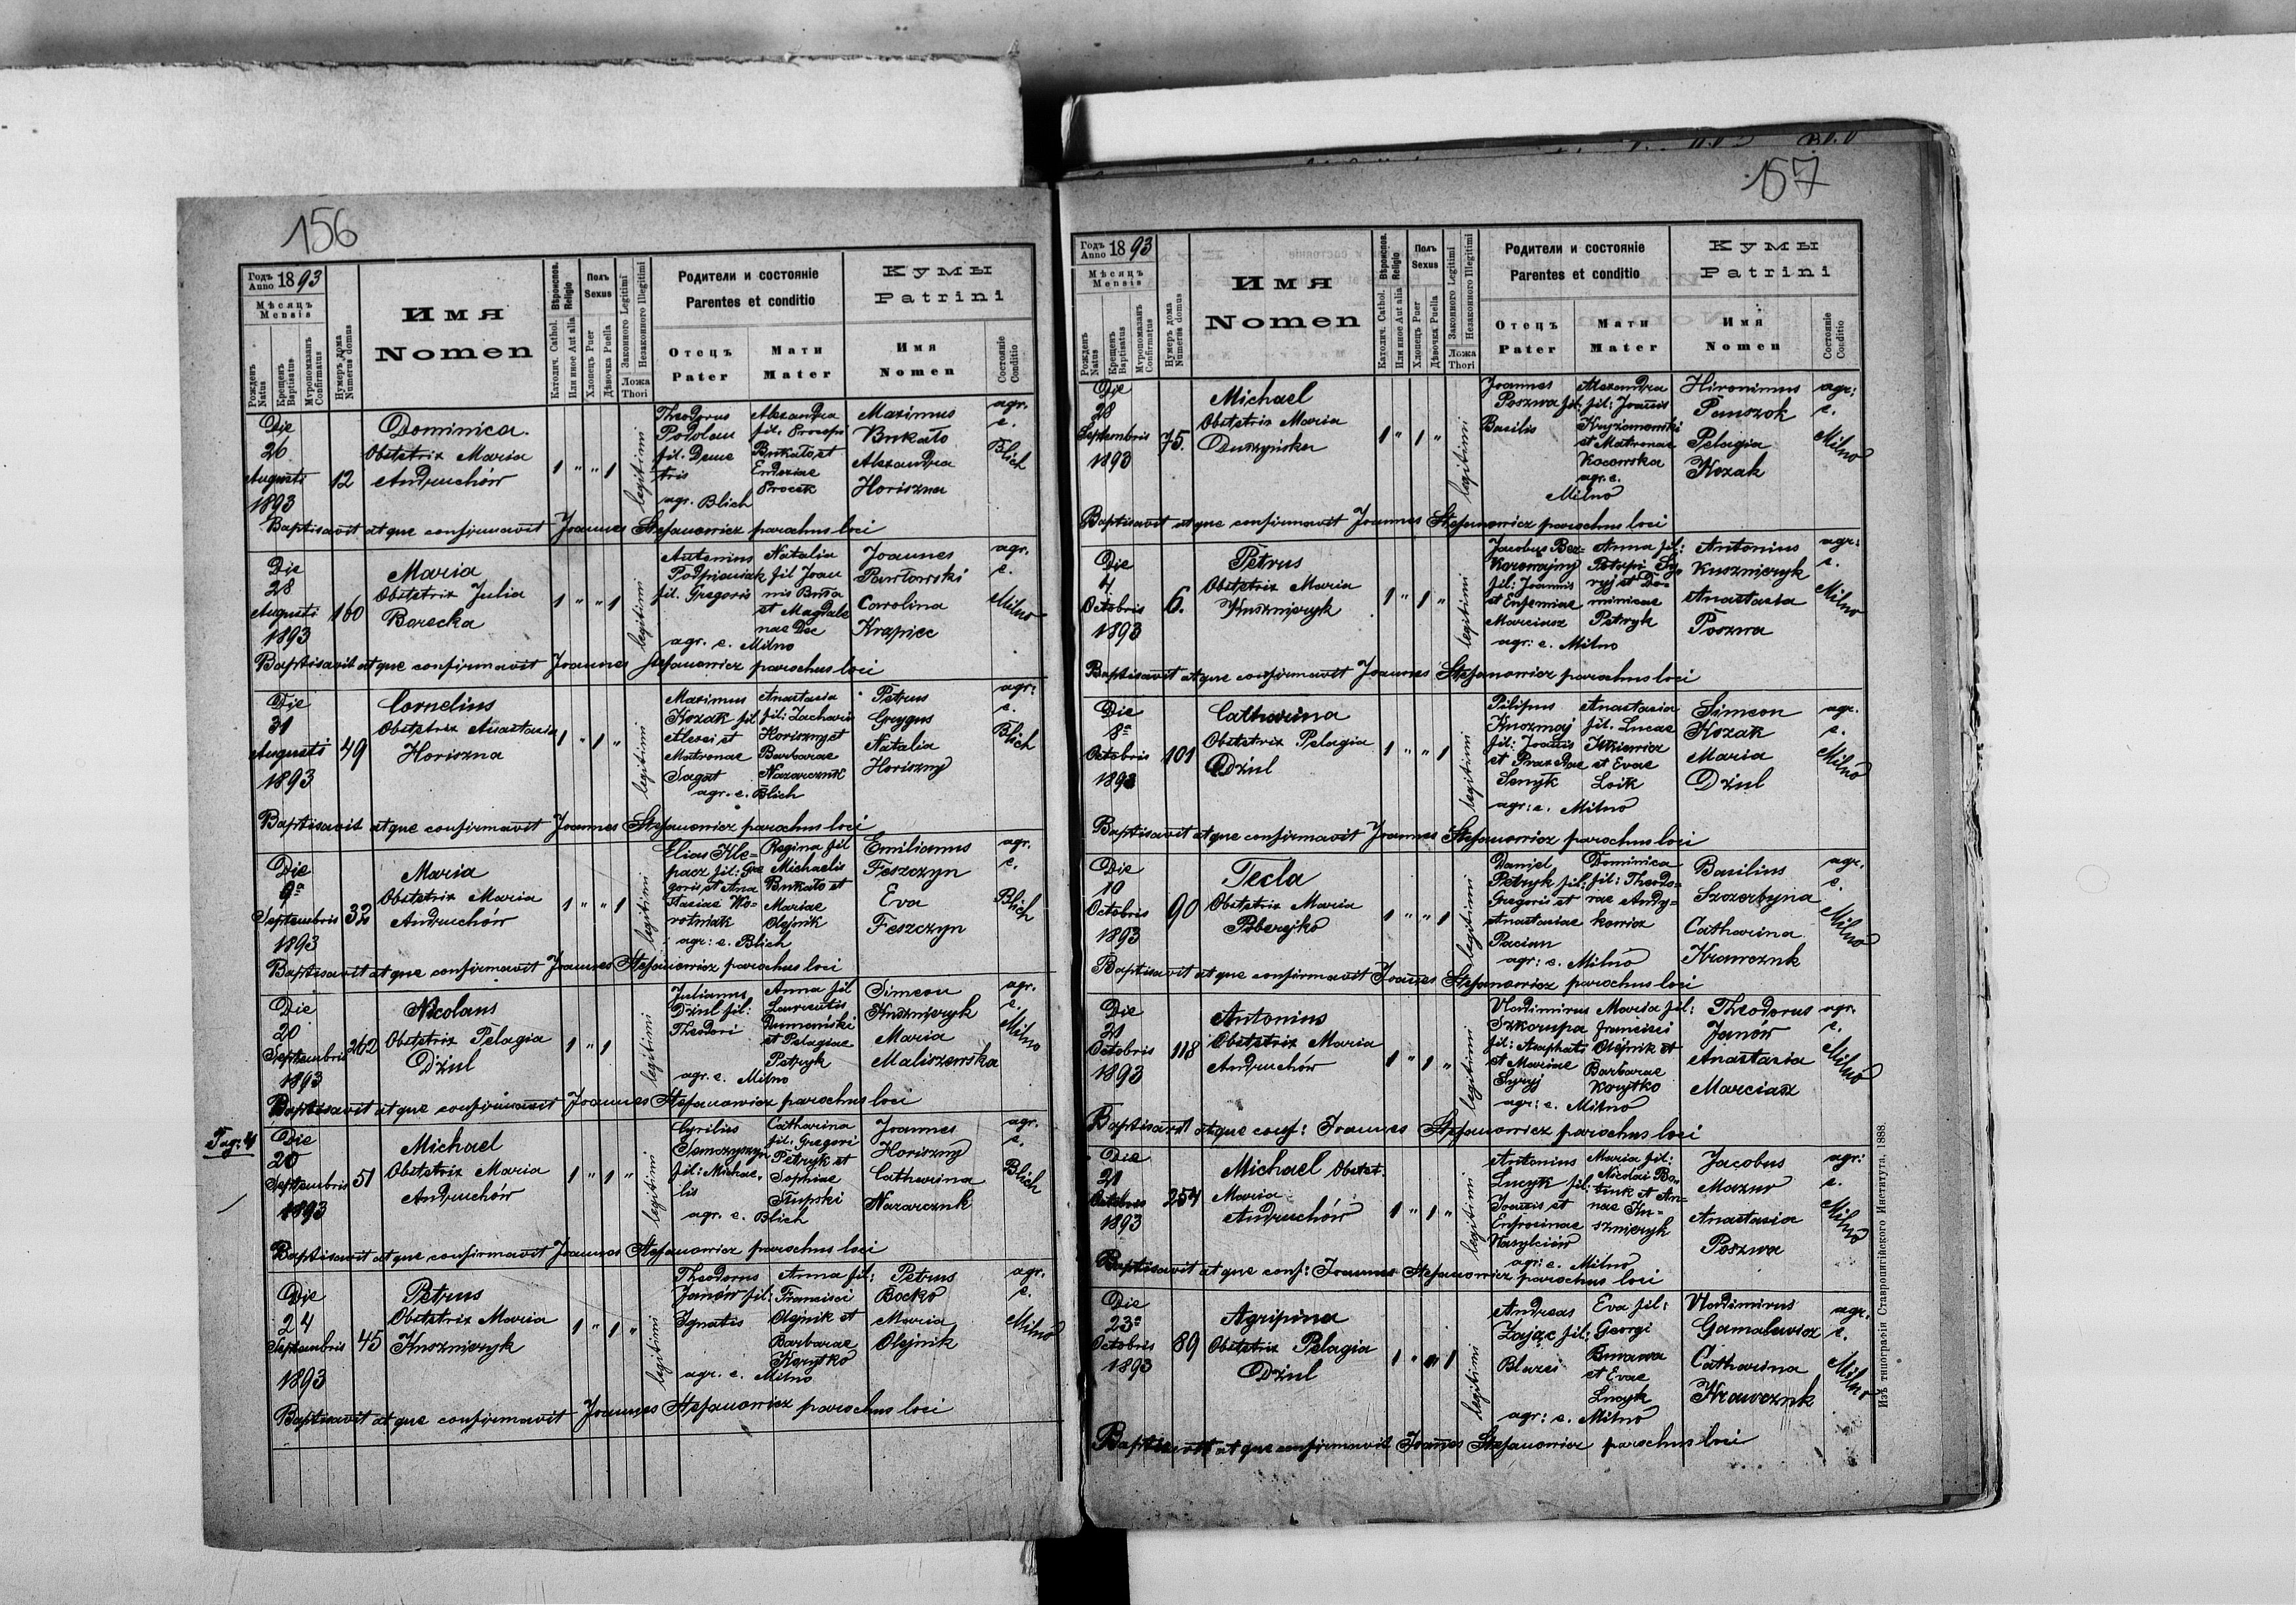 156
Годъ Anno 1893
Мѣсяцъ
Mensis
Рожденъ Natus
Крещенъ Baptisatus
Мѵропомазанъ Confirmatus
Нумеръ дома Numerus domus
Имя
Nomen
Вѣроиспов. Religio
Католич. Cathol.
Или иное Aut alia
Полъ
Sexus
Хлопецъ Puer
Дѣвочка Puella
Законного Legitimi
Незаконного Illegitimi
Ложа
Thori
Родители и состояніе
Parentes et conditio
Отецъ
Pater
Мати
Mater
Кумы
Patrini
Имя
Nomen
Состояніе
Conditio
Die 26 Augusti 1893
12
Dominica
Obstetrix Maria
Andruchów
1 " " 1
legitimi
Theodorus
Podolan
fil. Deme
trii
Alexandra
fil. Procopi
Bukało, et
Eudoxiae
Procek
agr. Blich
Maximus
Bukało
Alexandra
Horiszna
agr.
c.
Blich
Baptisavit atque confirmavit Joannes Stefanowicz parochus loci
Die 28 Augusti 1893
160
Maria
Obstetrix Julia
Borecka
1 " " 1
legitimi
Antonius
Podpianiak
fil. Gregoris
Natalia
fil Joan
nis Buła
et Magdale
nae Dec
agr. c. Milno
Joannes
Pawłowski
Carolina
Krąpiec
agr.
c.
Milno
Baptisavit atque confirmavit Joannes Stefanowicz parochus loci
Die 31 Augusti 1893
49
Cornelius
Obstetrix Anastasia
Horiszna
1 " 1 "
legitimi
Maximus
Kozak fil
Alexei et
Matronae
Sagat
Anastasia
fil: Zacharii
Horiszny et
Barbarae
Nazarczuk
agr. c. Blich
Petrus
Greygus
Natalia
Horiszny
agr:
c.
Blich
Baptisavit atque confirmavit Joannes Stefanowicz parochus loci
Die 9a Septembris 1893
32
Maria
Obstetrix Maria
Andruchów
1 " " 1
legitimi
Elias Kle=
pacz fil: Gre
goris, et Ana
stasiae Wo=
rotniak
Regina fil
Michaelis
Bukało et
Mariae
Olejnik
agr: c. Blich
Emilianus
Feszczyn
Eva
Feszczyn
agr.
c.
Blich
Baptisavit atque confirmavit Joannes Stefanowicz parochus loci
Die 20 Septembris 1893
262
Nicolaus
Obstetrix Pelagia
Dziul
1 " 1
legitimi
Julianus
Dziul fil:
Theodori
Anna fil
Laurentis
Dumański
et Pelagiae
Petryk
agr. c. Milno
Simeon
Kusznieryk
Maria
Maliszewska
agr.
c.
Milno
Baptisavit atque confirmavit Joannes Stefanowicz parochus loci
Die 20 Septembris 1893
51
Michael
Obstetrix Maria
Andruchów
1 " 1 "
legitimi
Cyrilius
Semczyszyn
fil: Michae.
lis
Catharina
fil: Gregori
Petryk et
Sophiae
Słupski
agr. c. Blich
Joannes
Horiszny
Catharina
Nazarczuk
agr.
c.
Blich
Baptisavit atque confirmavit Joannes Stefanowicz parochus loci
Die 24 Septembris 1893
45
Petrus
Obstetrix Maria
Kusznieryk
1 " 1 "
legitimi
Theodorus
Janów fil:
Ignatis
Anna fil:
Francisci
Olejnik et
Barbarae
Korytko
agr. c. Milno
Petrus
Bocko
Maria
Olejnik
agr.
c.
Milno
Baptisavit atque confirmavit Joannes Stefanowicz parochus loci
157
Годъ Anno 1893
Мѣсяцъ
Mensis
Рожденъ Natus
Крещенъ Baptisatus
Мѵропомазанъ Confirmatus
Нумеръ дома Numerus domus
Имя
Nomen
Вѣроиспов. Religio
Католич. Cathol.
Или иное Aut alia
Полъ
Sexus
Хлопецъ Puer
Дѣвочка Puella
Законного Legitimi
Незаконного Illegitimi
Ложа
Thori
Родители и состояніе
Parentes et conditio
Отецъ
Pater
Мати
Mater
Кумы
Patrini
Имя
Nomen
Состояніе
Conditio
Die 28 Septembris 1893
75.
Michael
Obstetrix Maria
Duszyńska
1 " 1 "
legitimi
Joannes
Poszwa fil:
Basilis
Alexandra
fil: Joannis
Kryzanowski
et Matronae
Kocowska
agr. c.
Milno
Hironimus
Panszok
Pelagia
Kozak
agr:
c.
Milno
Baptisavit atque confirmavit Joannes Stefanowicz parochus loci
Die 4 Octobris 1893
6.
Petrus
Obstetrix Maria
Kusznieryk
1 " 1 "
legitimi
Jacobus Bez=
Korowajny
fil: Joannis
et Eufemiae
Marciasz
Anna fil:
Potapi Sy=
ryj et Do=
minicae
Petryk
agr: c. Milno
Antonius
Kusznieryk
Anastasia
Poszwa
agr:
c.
Milno
Baptisavit atque confirmavit Joannes Stefanowicz parochus loci
Die 8a Octobris 1893
101
Catharina
Obstetrix Pelagia
Dziul
1 " " 1
legitimi
Pilipus
Knozmaj
fil: Joannis
et Praxedae
Senyk
Anastasia
fil. Lucae
Ickiewicz
et Evae
Loik
agr: c. Milno
Simeon
Kozak
Maria
Dziul
agr.
c.
Milno
Baptisavit atque confirmavit Joannes Stefanowicz parochus loci
Die 10 Octobris 1893
90
Tecla
Obstetrix Maria
Poberejko
1 " " 1
legitimi
Daniel
Petryk fil:
Gregoris et
Anastasiae
Pacian
Dominica
fil: Theodo=
rae Andy=
kowicz
agr: c. Milno
Basilius
Szczerbyna
Catharina
Krawczuk
agr.
c.
Milno
Baptisavit atque confirmavit Joannes Stefanowicz parochus loci
Die 21 Octobris 1893
118
Antonius
Obstetrix Maria
Andruchów
1 " 1 "
legitimi
Vladimirus
Szkorupa
fil: Azaphati
et Mariae
Syryj
Maria fil:
Francisci
Olejnik et
Barbarae
Korytko
agr: c. Milno
Theodorus
Janów
Anastasia
Marciasz
agr.
c.
Milno
Baptisavit atque conf: Joannes Stefanowicz parochus loci
Die 21 Octobris 1893
254
Michael Obstet.
Maria
Andruchów
1 " 1 "
legitimi
Antonius
Lucyk fil:
Joannis et
Eufrosinae
Wasylciów
Maria fil:
Nicolai Ba=
tiuk et An=
nae Ku=
sznieryk
agr: c. Milno
Jacobus
Mazur
Anastasia
Poszwa
agr:
c.
Milno
Baptisavit atque conf: Joannes Stefanowicz parochus loci
Die 23a Octobris 1893
89
Agripina
Obstetrix Pelagia
Dziul
1 " " 1
legitimi
Andreas
Zając fil:
Blazei
Eva fil:
Georgi
Burawa
et Evae
Lucyk
agr: c. Milno
Vladimirus
Gamalewicz
Catharina
Krawczuk
agr.
c.
Milno
Baptisavit atque confirmavit Joannes Stefanowicz parochus loci
Изъ типографіи Ставропигійского Института, 1888.